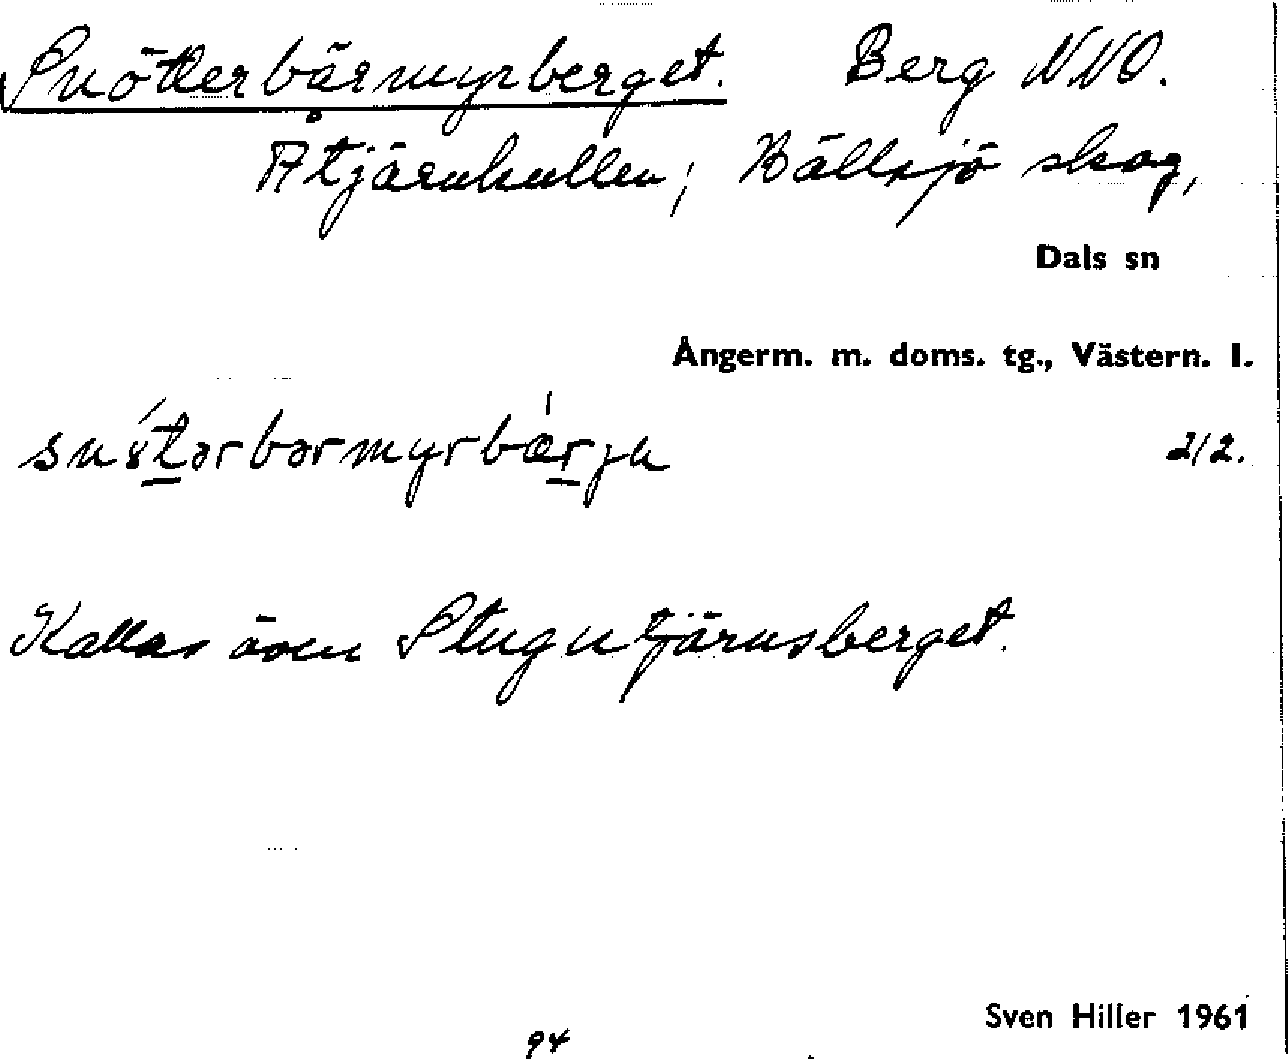 Snötterbärmyrberget. Berg NNO.
Åtjärnkullen; Bällsjö skog,
Dals sn
Ångerm. m. doms. tg., Västern. l.
snøtərbərmyrbærjn 2/2.
Kallas även Stugutjärnsberget.
Sven Hiller 1961
94